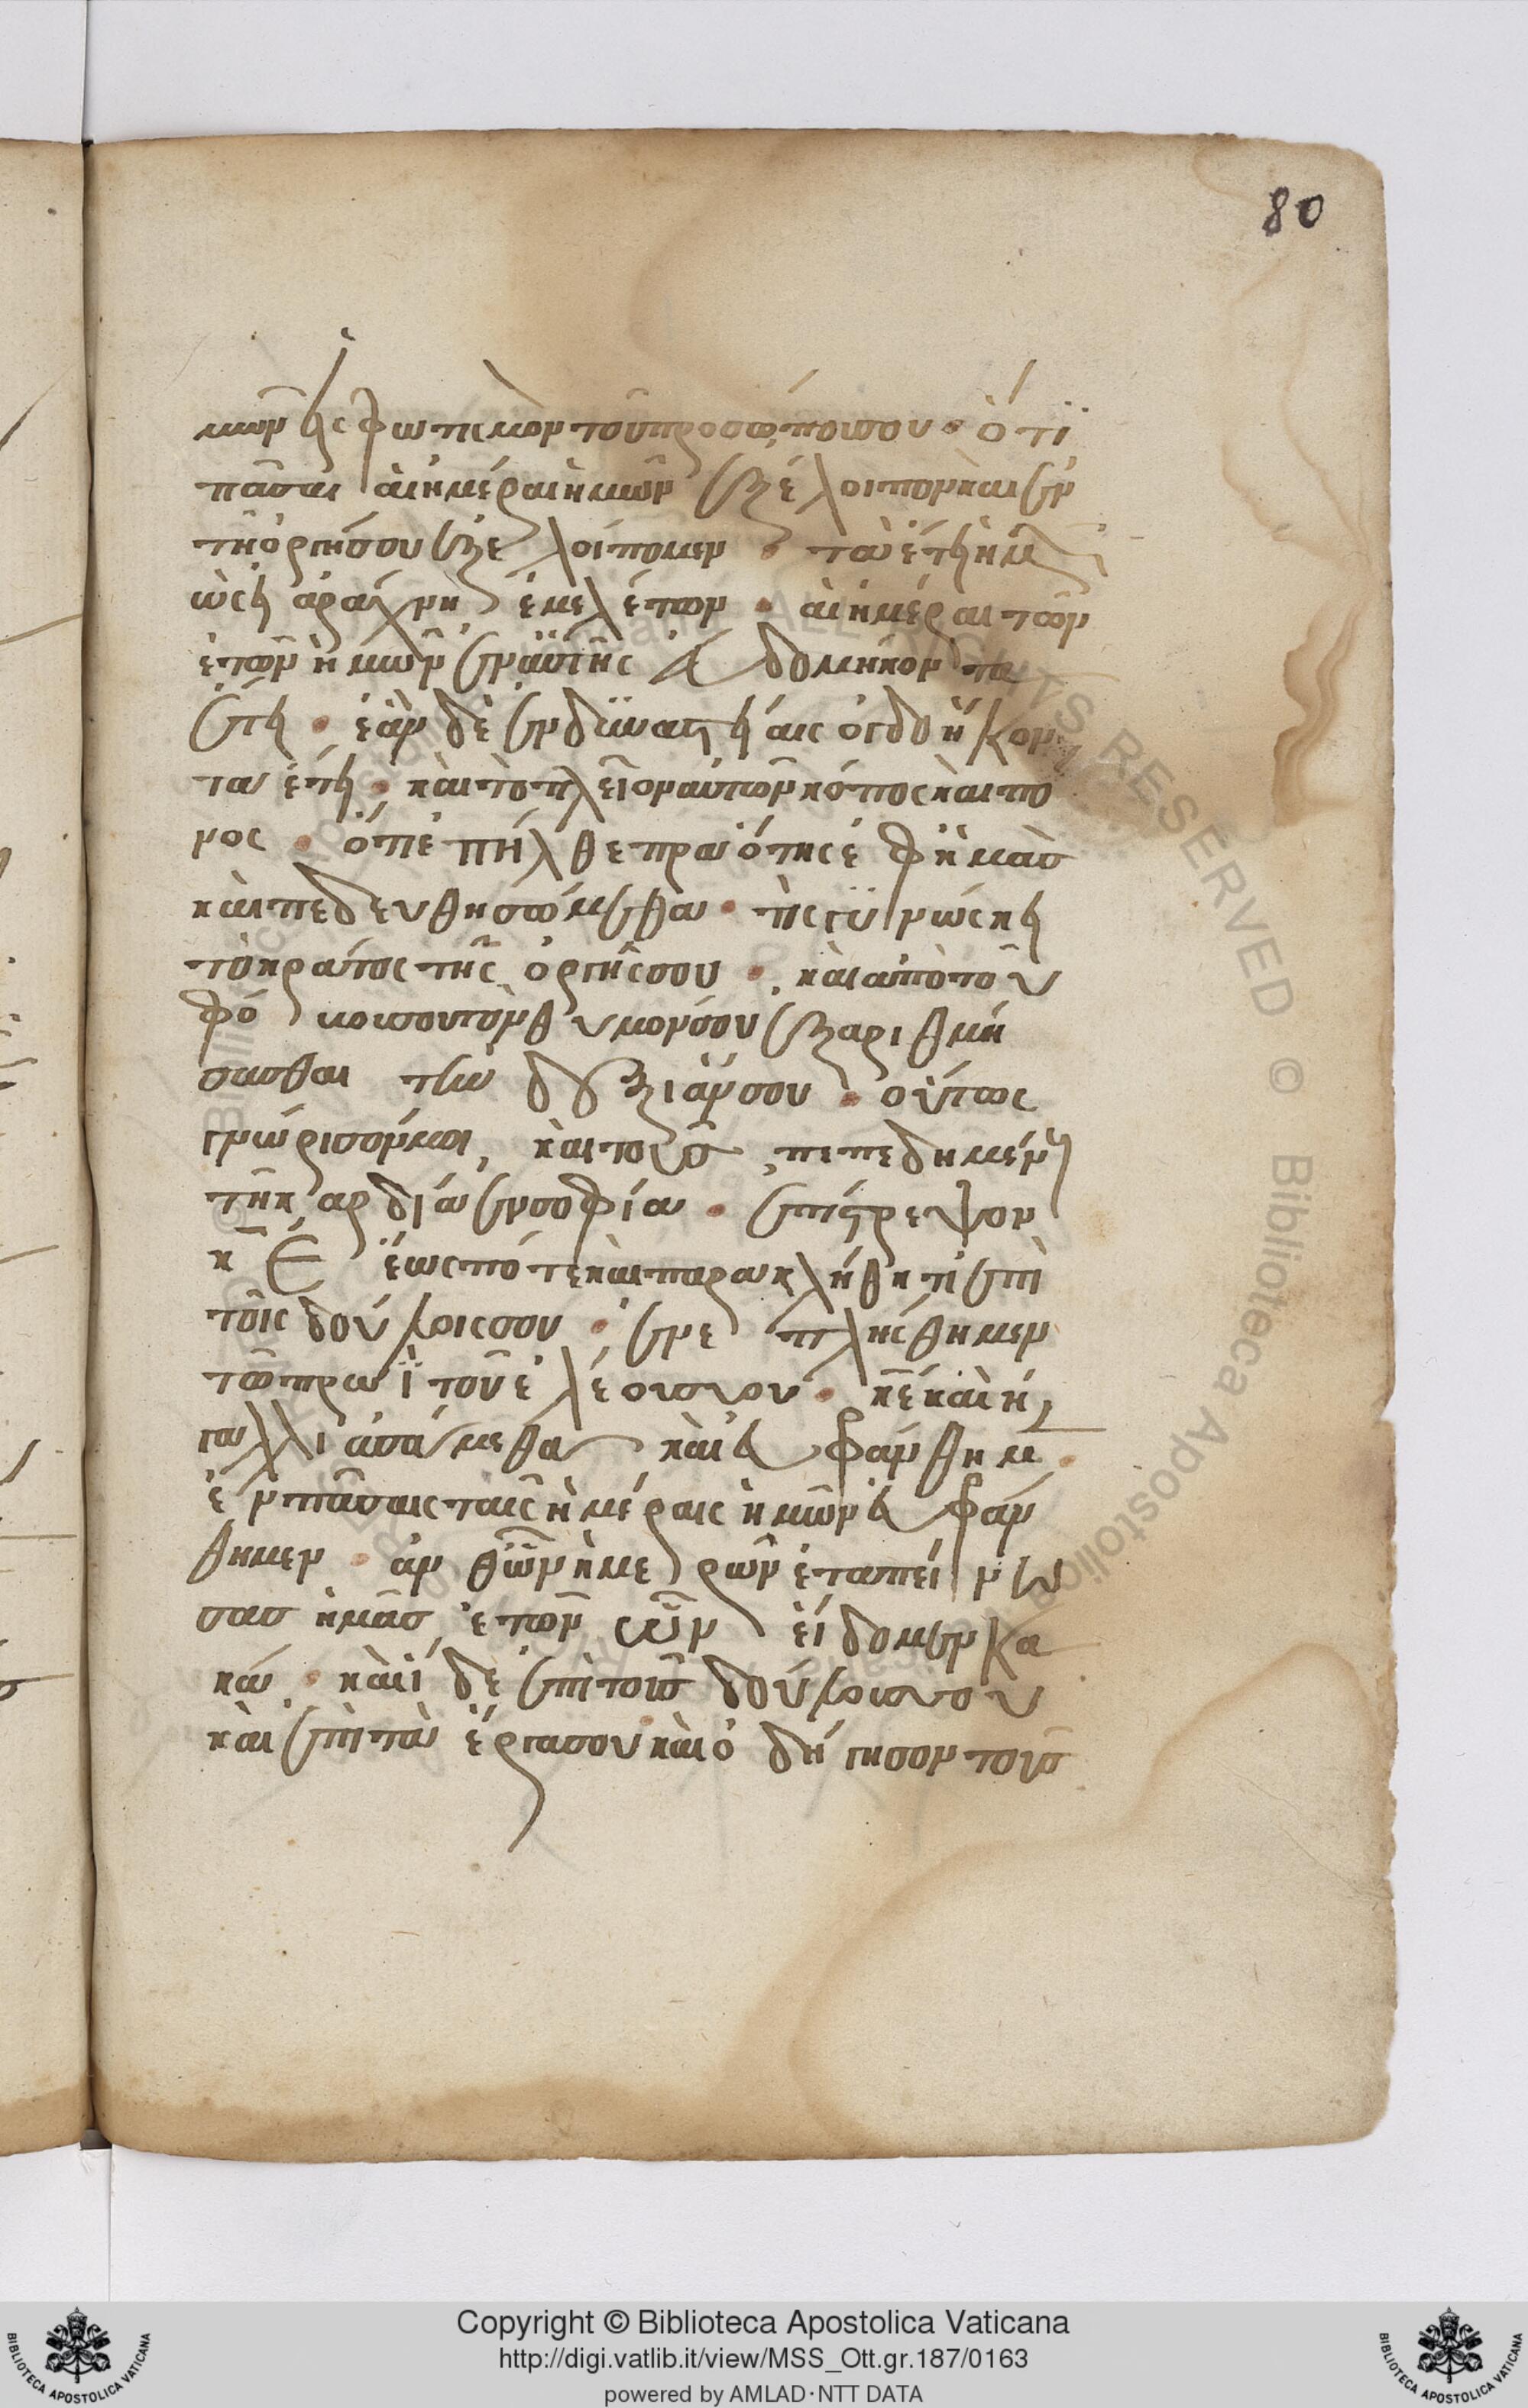 80
μων εἰς φωτισμὸν τοῦ προσώπου σου · ὅτι
πᾶσαι αἱ ἡμέραι ἡμῶν ἐξέλοιπον καὶ ἐν
τῆ ὀργήσου ἐξελοίπομεν · τὰ ἔτη ἡμ
ὡσεὶ ἀράχνη ἐμελέτων · αἱ ἡμέραι τῶν
ἐτῶν ἡμῶν ἐν αὐτῆς ἑβδομήκοντα
ἔτη · ἐὰν δὲ ἐν δυναστείαις ὀγδοήκον
τα ἔτη · καὶ τὸ πλεῖον αὐτῶν κόπος καὶ πό
νος · ὅτι ἐπήλθε πραότης ἐφ ἡμὰσ
καὶ πεδευθησώμεθα · τίς γινώσκει
τὸ κράτος τῆς ὀργῆς σου · καὶ ἀπὸ τοῦ
φόβου σου τὸν θυμόν σου ἐξαριθμή
σασθαι τὴν δεξιάν σου · οὕτως
γνώρισόν μοι καὶ τοὺσ πεπεδημέν
τῆ καρδία ἐν σοφία · ἐπίστρεψον
κε ἕως πότε καὶ παρακλήθητι ἐπὶ
τοῖς δούλοις σου · ἐνεπλήσθημεν
τῶ πρωῒ τοῦ ἐλέους σου · κε καὶ ἠ
γαλλιασάμεθα καὶ εὐφάνθημ ·
ἐν πάσαις ταῖς ἡμέραις ἡμῶν εὐφάν
θημεν · ἀνθ ὧν ἡμερῶν ἐταπείνω
σασ ἡμᾶσ ἐτῶν ὧν εἴδομεν κα
κά · καὶ ἴδε ἐπὶ τοὺσ δούλους σου
καὶ ἐπὶ τὰ ἔργα σου καὶ ὁδήγησον τοὺσ
Copyright © Biblioteca Apostolica Vaticana
http://digi.vatlib.it/view/MSS_Ott.gr.187/0163
powered by AMLAD·NTT DATA